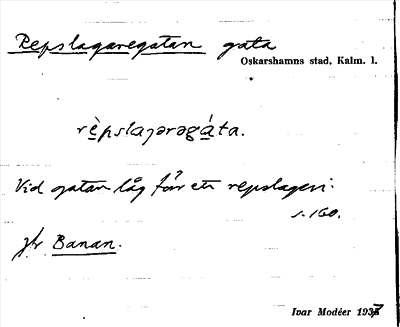 Repslagaregatan gata
Oskarshamns stad, Kalm. l.
rèpslaɡarəgáta.
Vid gatan låg förr ett repslageri.
s. 160.
Jfr Banan.
Ivar Modéer 1937